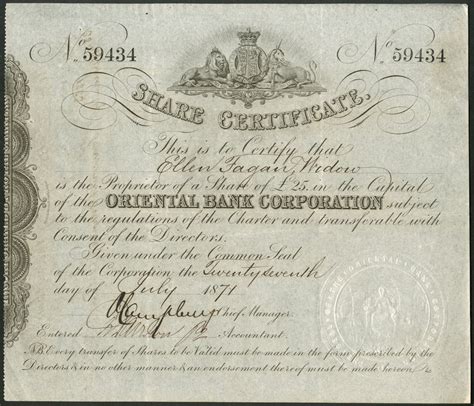 No. 59434 No. 59434
SHARE CERTIFICATE.
This is to Certify that
Ellen Fagan, Widow
is the Proprietor of a Share of £25. in the Capital
of the ORIENTAL BANK CORPORATION subject
to the regulations of the Charter and transferable with
Consent of the Directors.
Given under the Common Seal
of the Corporation, the Twenty seventh
day of July 1871
Chief Manager.
Entered Accountant.
N.B. Every transfer of Shares to be Valid must be made in the form prescribed by the
Directors & in no other manner & an endorsement thereof must be made hereon